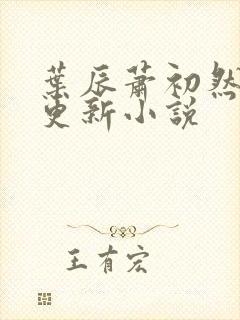 葉辰蕭初然
更新小說
王有宏